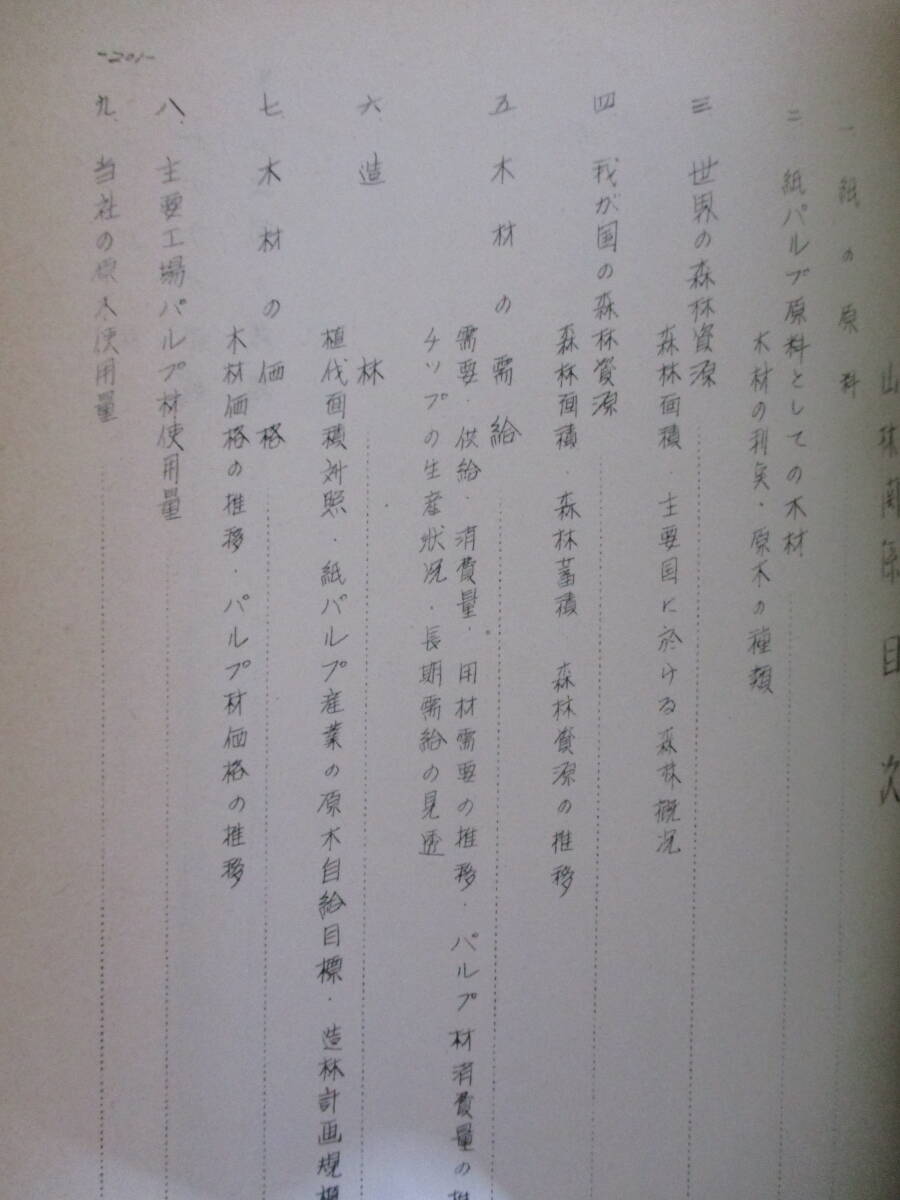 山林関係目次
一、紙の原料
二、紙パルプ原料としての木材
木材の利点・原木の種類
三、世界の森林資源
森林面積・主要国に於ける森林概況
四、我が国の森林資源
森林面積・森林蓄積・森林資源の推移
五、木材の需給
需要・供給・消費量・用材需要の推移・パルプ材消費量の推
チップの生産状況・長期需給の見透
六、造林
植伐面積対照・紙パルプ産業の原木自給目標・造林計画規模
七、木材の価格
木材価格の推移・パルプ材価格の推移
八、主要工場パルプ材使用量
九、当社の原木使用量
-201-